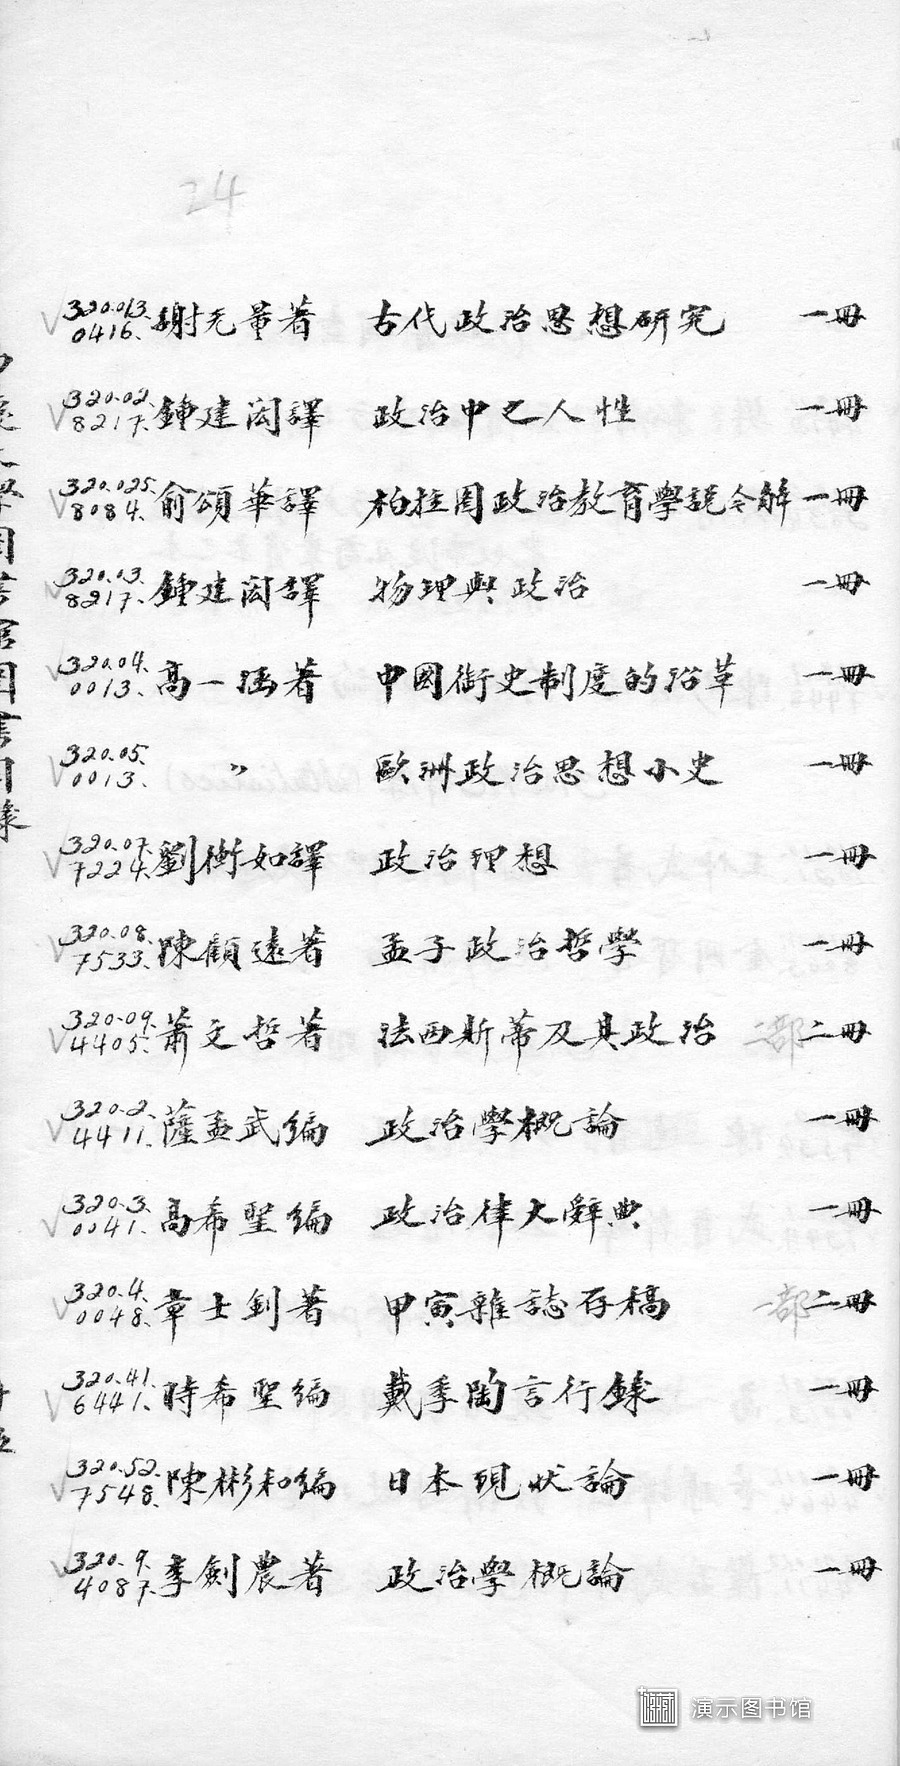 24
320.013. 0416. 謝无量著 古代政治思想研究 一冊
320.02. 8217. 鍾建閎譯 政治中之人性 一冊
320.025. 8084. 俞頌華譯 柏拉圖政治教育學說今解 一冊
320.03. 8217. 鍾建閎譯 物理與政治 一冊
320.04. 0013. 高一涵著 中國御史制度的沿革 一冊
320.05. 0013. 〃 歐洲政治思想小史 一冊
320.07. 7224. 劉衡如譯 政治理想 一冊
320.08. 7533. 陳顧遠著 孟子政治哲學 一冊
320.09. 4405. 蕭文哲著 法西斯蒂及其政治 二部 二冊
320.2. 4411. 薩孟武編 政治學概論 一冊
320.3. 0041. 高希聖編 政治律大辭典 一冊
320.4. 0048. 章士釗著 甲寅雜誌存稿 一部 二冊
320.41. 6441. 時希聖編 戴季陶言行錄 一冊
320.52. 7548. 陳彬和編 日本現狀論 一冊
320.9. 4087. 李劍農著 政治學概論 一冊
演示图书馆